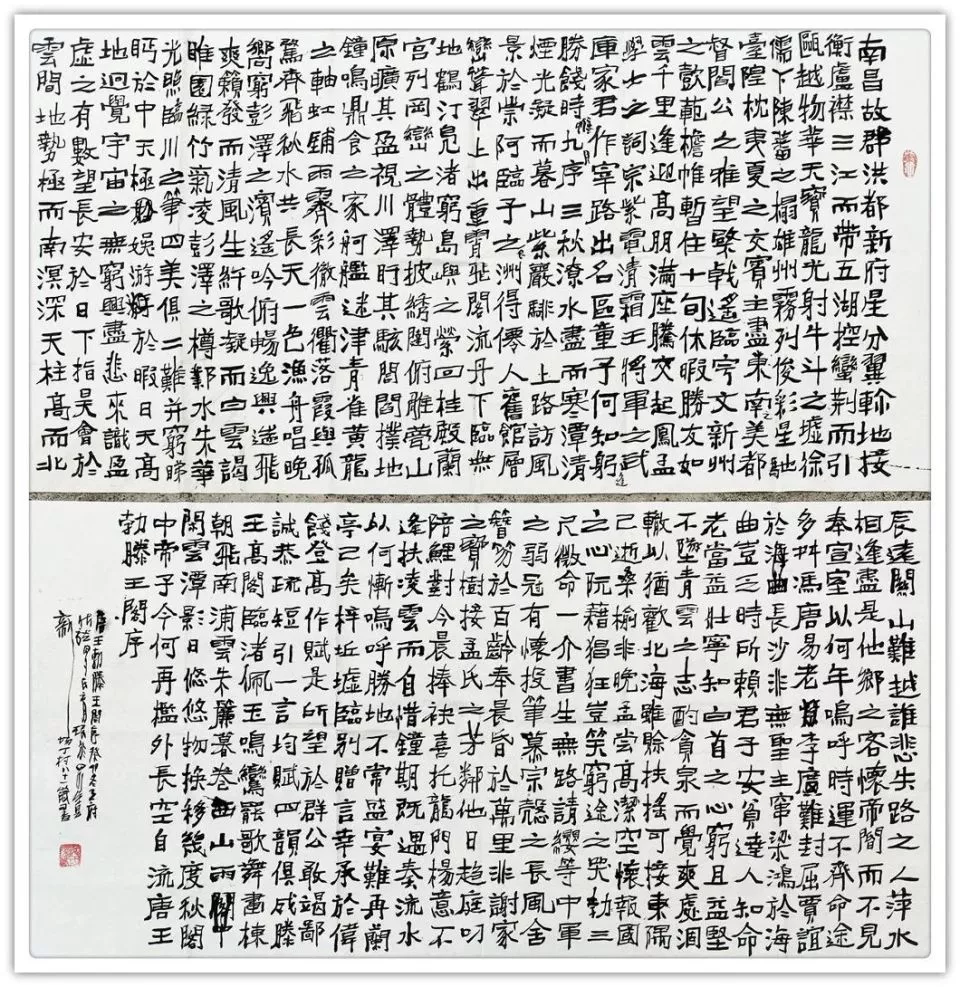 南昌故郡洪都新府星分翼軫地接
衡廬襟三江而帶五湖控蠻荆而引
甌越物華天寶龍光射牛斗之墟徐
儒下陳蕃之榻雄州霧列俊彩星馳
臺隍枕夷夏之交賓主盡東南之美都
督閻公之雅望棨戟遙臨宇文新州
之懿範襜帷暫住十旬休暇勝友如
雲千里逢迎高朋滿座騰交起鳳孟
學士之詞宗紫電清霜王將軍之武
庫家君作宰路出名區童子何知躬逢
勝餞時惟九月序三秋潦水盡而寒潭清
煙光凝而暮山紫嚴騑於上路訪風
景於崇阿臨子之長洲得僊人舊館層
巒聳翠上出重霄飛閣流丹下臨無
地鶴汀凫渚窮島嶼之縈回桂殿蘭
宮列岡巒之體勢披綉闥俯雕甍山
原曠其盈視川澤盱其駭閭閻撲地
鐘鳴鼎食之家舸艦迷津青雀黃龍
之軸虹銷雨霽彩徹雲衢落霞與孤
鶩齊飛秋水共長天一色漁舟唱晚
響窮彭澤之濱遙吟俯暢逸興遄飛
爽籟發而清風生纤歌凝而白雲遏
睢園綠竹氣凌彭澤之樽鄴水朱華
光照臨川之筆四美俱二難并窮睇
眄於中天極娛游於暇日天高
地迥覺宇宙之無窮興盡悲來識盈
虛之有數望長安於日下指吴會於
雲間地勢極而南溟深天柱高而北
辰遠關山難越誰悲失路之人萍水
相逢盡是他鄉之客懷帝閽而不見
奉宣室以何年嗚呼時運不齊命途
多舛馮唐易老李廣難封屈賈誼
於長沙非無聖主竄梁鴻於海
曲豈乏時所賴君子安貧達人知命
老當益壯寧知白首之心窮且益堅
不墜青雲之志酌貪泉而覺爽處涸
轍以猶歡北海雖賒扶搖可接東隅
已逝桑榆非晚孟尝高潔空懷報國
之心阮藉猖狂豈笑窮途之哭勃三
尺微命一介書生無路請纓等中軍
之弱冠有懷投筆慕宗慤之長風舍
簪笏於百齡奉晨昏於萬里非謝家
之寶樹接孟氏之芳鄰他日趋庭叨
陪鯉對今晨捧袂喜托龍門楊意不
逢扶凌雲而自惜鐘期既遇奏流水
以何慚嗚呼勝地不常盛宴難再蘭
亭已矣梓坵墟臨别贈言幸承於偉
餞登高作賦是所望於群公敢竭鄙
誠恭疏短引一言均賦四韻俱成滕
王高閣臨渚佩玉鳴鸞罷歌舞畫棟
朝飛南浦雲朱簾暮卷西山雨閣中
閑雲潭影日悠悠物换移幾度秋閣
中帝子今何再檻外長空自流唐王
勃滕王閣序
唐王勃滕王閣序